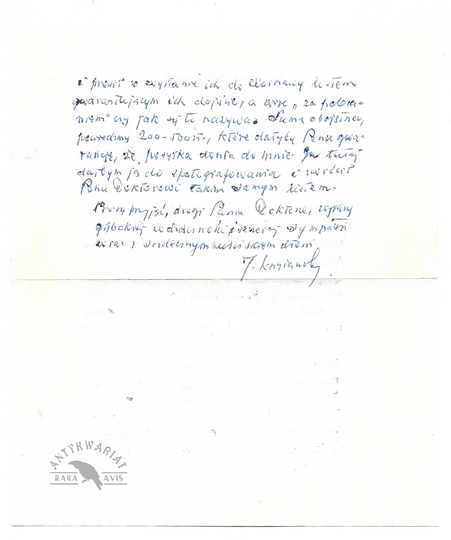 i prosił o wysłanie ich do Warszawy listem
gwarantującym ich dojście, a więc „za pobra-
niem" czy jak się to nazywa. Suma obojętna,
powiedzmy 200-500zł., które dałyby Panu gwa-
rancję, że posyłka doszła do mnie. Ja tutaj
dałbym je do sfotografowania i zwrócił
Panu Doktorowi takim samym listem.
Proszę przyjąć, drogi Panie Doktorze, wyrazy
głębokiej wdzięczności i szczerej sympatii
wraz z serdecznym uściskiem dłoni.
J.
ANTYKWARIAT
RARA AVIS